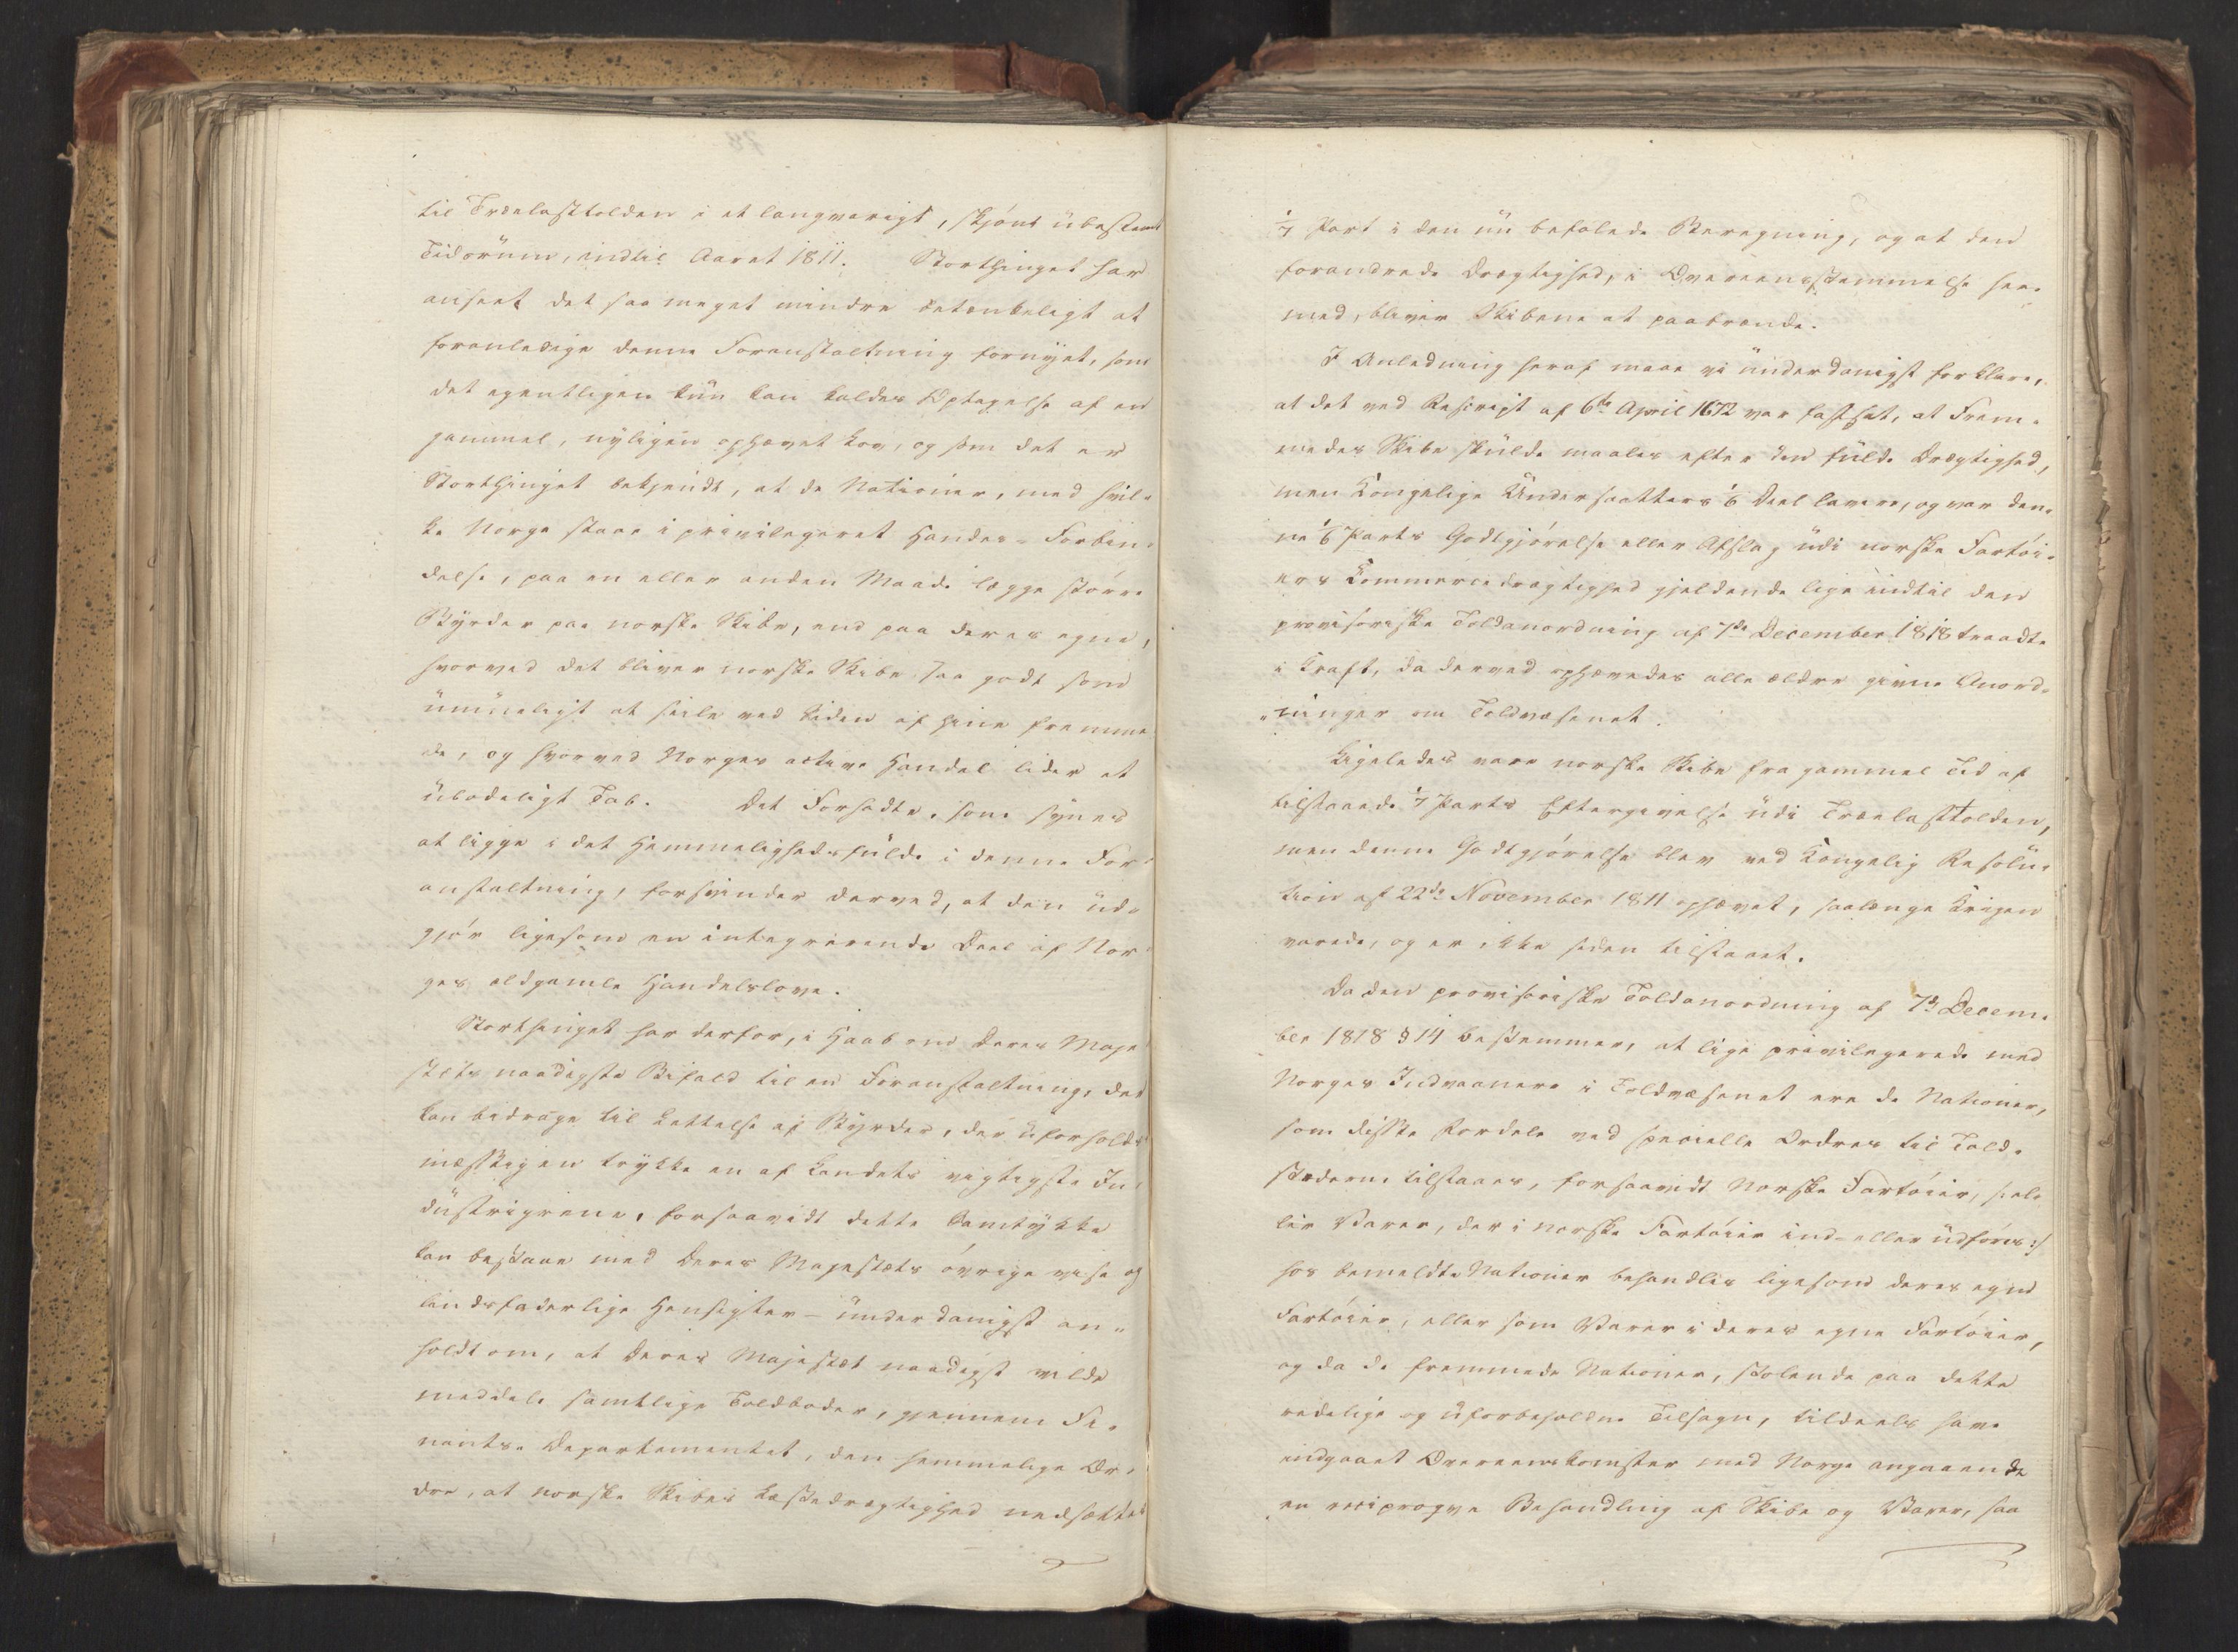 til Trælasttolden i et langvarigt, skjönt ubestemt
Tidsrum, indtil Aaret 1811. Storthinget har
anseet det saa meget mindre betænkeligt at
foranledige denne Foranstaltning fornyet, som
det egentligen kun kan kaldes Optagelse af en
gammel, nyligen ophævet Lov, og som det er
Storthinget bekjendt, at de Nationer, med hvil-
ke Norge staae i privilegeret Handels-Forbin-
delse, paa en eller anden Maade lægge större
Byrder paa norske Skibe, end paa deres egne,
hvorved det bliver norske Skibe saa godt som
umueligt at seile ved Siden af hine fremme-
de, og hvorved Norges active Handel lider et
ubodeligt Tab. Det Forhadte, som synes
at ligge i det Hemmelighedsfulde i denne For-
anstaltning, forsvinder derved, at den ud-
gjör ligesom en integrerende Deel af Nor-
ges ældgamle Handelslove.
Storthinget har derfor, i Haab om Deres Maje-
stæts naadigste Bifald til en Foranstaltning, der
kan bidrage til Lettelse af Byrder, der uforholds-
mæssigen trykke en af Landets vigtigste In-
dustrigrene, forsaavidt dette Samtykke
kan bestaae med Deres Majestæts övrige vise og
landsfaderlige Hensigter – underdanigst an-
holdt om, at Deres Majestæt naadigst vilde
meddele samtlige Toldboder, gjennem Fi-
nants-Departementet, den hemmelige Or-
dre, at norske Skibes Læstedrægtighed nedsættes
1/7 Part i den nu befalede Beregning, og at den
forandrede Drægtighed, i Overeensstemmelse her-
med, bliver Skibene at paabrænde.
I Anledning heraf maae vi underdanigst forklare,
at det ved Rescript af 6te April 1672 var fastsat, at Frem-
medes Skibe skulde maales efter den fulde Drægtighed,
men Kongelige Undersaatters 1/6 Deel lavere, og var den-
ne 1/6 Parts Godtgjörelse eller Afslag udi norske Fartöi-
ers Commercedrægtighed gjeldende lige indtil den
provisoriske Toldanordning af 7de December 1818 traadte
i Kraft, da derved ophævedes alle ældre givne Anord-
ninger om Toldvæsenet.
Ligeledes vare norske Skibe fra gammel Tid af
tilstaaede 1/7 Parts Eftergivelse udi Trælasttolden,
men denne Godtgjörelse blev ved Kongelig Resolu-
tion af 22de November 1811 ophævet, saalænge Krigen
varede, og er ikke siden tilstaaet.
Da den provisoriske Toldanordning af 7de Decem-
ber 1818 § 14 bestemmer, at lige privilegerede med
Norges Indvaanere i Toldvæsenet ere de Nationer,
som disse Fordele ved specielle Ordres til Told-
stederne tilstaaes, forsaavidt Norske Fartöier, /: el-
ler Varer, der i norske Fartöier ind- eller udföres :/
hos bemeldte Nationer behandles ligesom deres egne
Fartöier, eller som Varer i deres egne Fartöier,
og da de fremmede Nationer, stolende paa dette
redelige og uforbeholdne Tilsagn, tildeels have
indgaaet Overeenskomster med Norge angaaende
en reciproqve Behandling af Skibe og Varer, saa